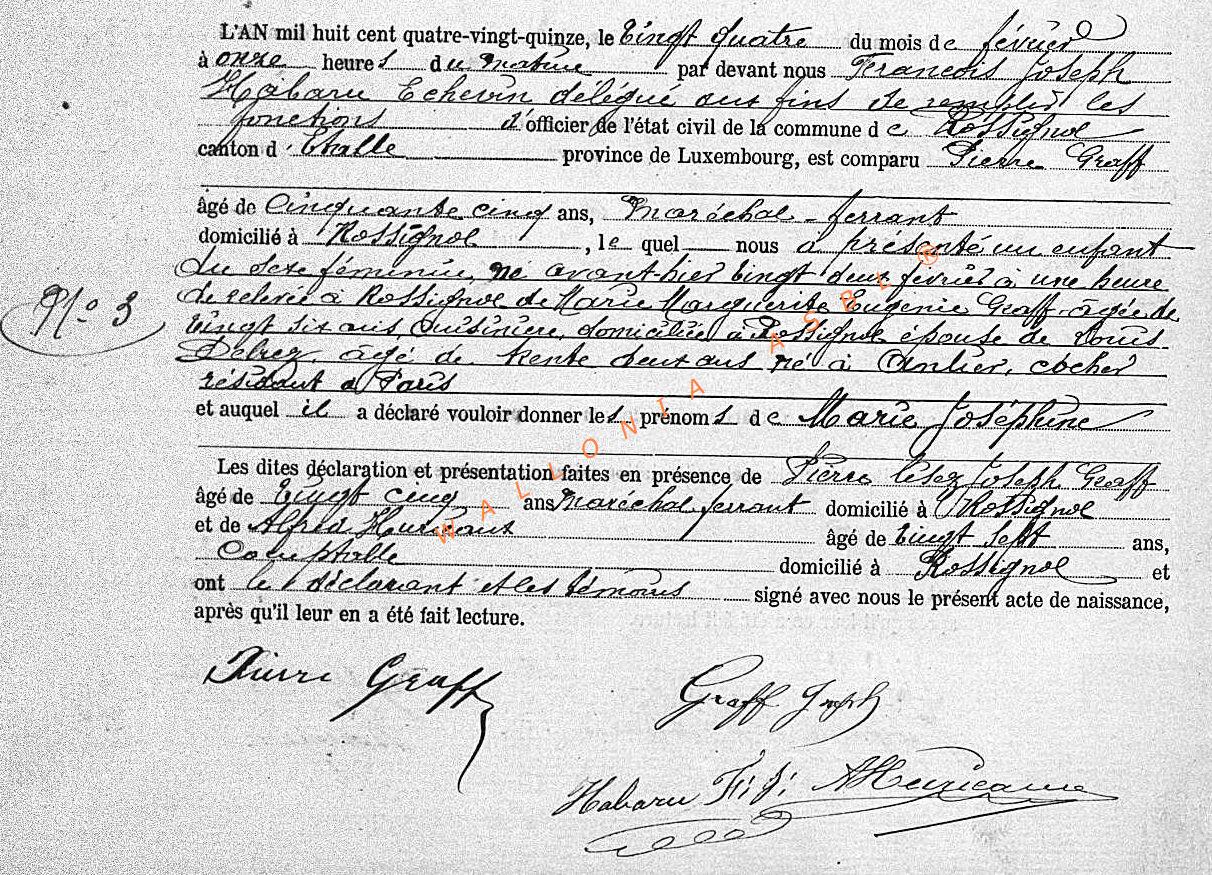 L'AN mil huit cent quatre-vingt-quinze, le vingt quatre du mois de février
à onze heures du matin par devant nous François Joseph
Habaru Echevin délégué aux fins de remplir les
fonctions d'officier de l'état civil de la commune de Rossignol
canton d'Etalle province de Luxembourg, est comparu Pierre Graff
âgé de Cinquante cinq ans, Maréchal-ferrant
domicilié à Rossignol, le quel nous a présenté un enfant
du sexe féminin, né avant hier vingt deux février à une heure
No 3
de relevée à Rossignol de Marie Marguerite Eugenie Graff âgée de
vingt six ans cuisinière, domiciliée à Rossignol épouse de Louis
Delrez, âgé de trente deux ans né à Anlier, cocher
résidant à Paris
et auquel il a déclaré vouloir donner les prénoms de Marie Joséphine
Les dites déclaration et présentation faites en présence de Pierre Joseph Graff
âgé de Vingt cinq ans Maréchal ferrant domicilié à Rossignol
et de Alfred âgé de vingt sept ans,
Comptable domicilié à Rossignol et
ont le déclarant et les témoins signé avec nous le présent acte de naissance,
après qu'il leur en a été fait lecture.
Pierre Graff
Graff Joseph
Habaru
WALLONIA ASBL ®